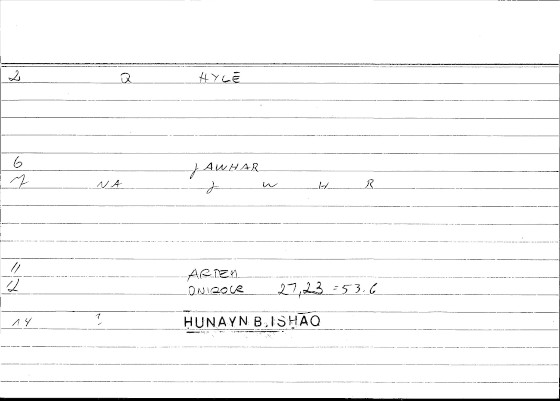 2 Q HYLĒ
6 JAWHAR
7 NA J W H R
11 ARTEM
12 ONIROCR 27,23 = 53.6
14 1 HUNAYN B. ISḤĀQ